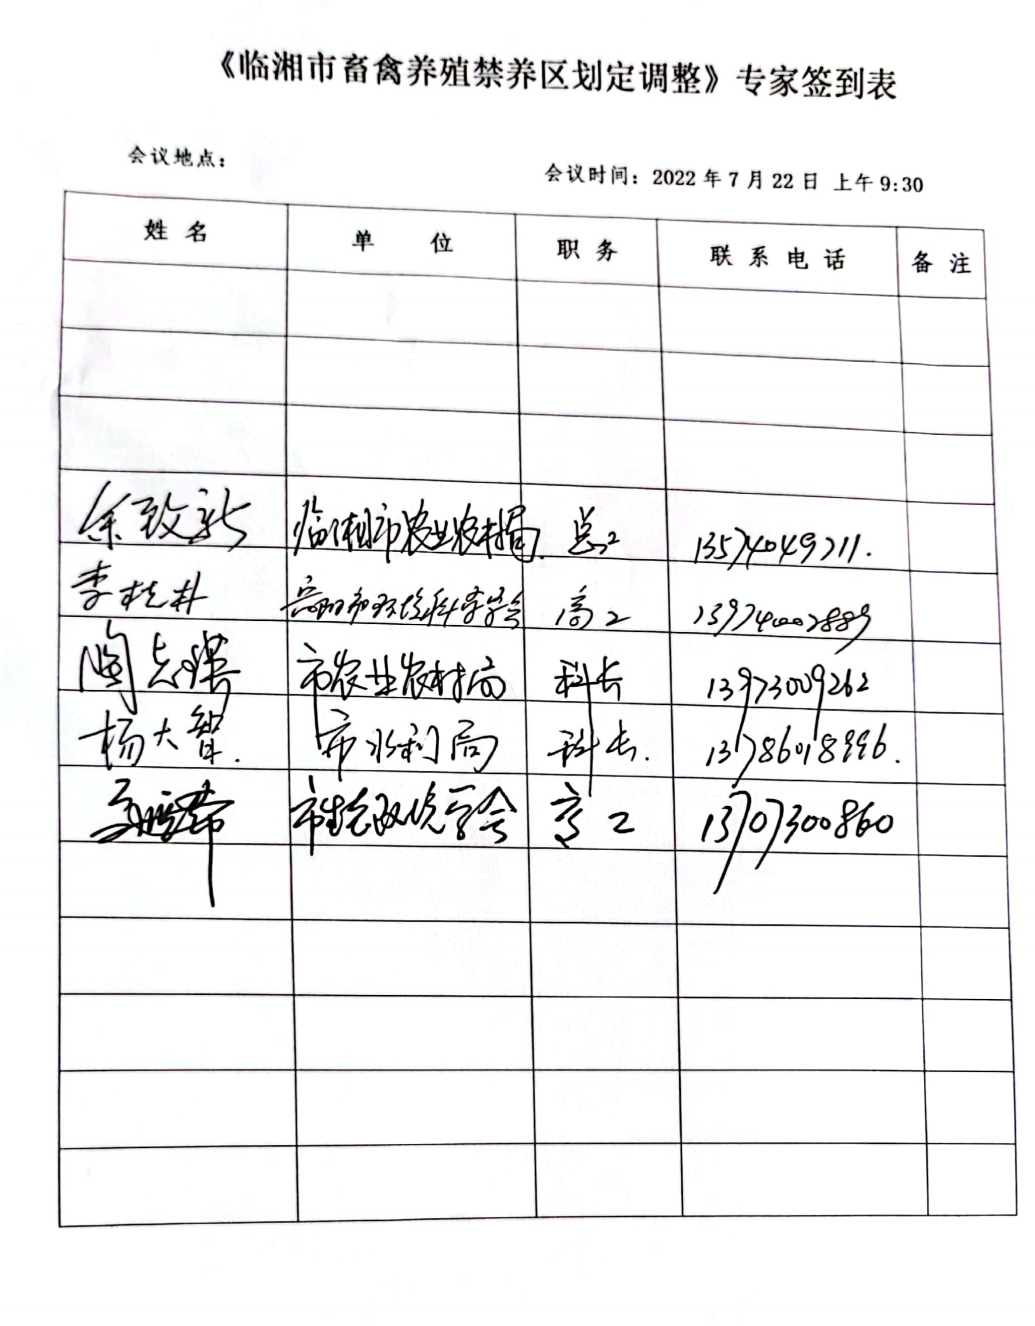 《临湘市畜禽养殖禁养区划定调整》专家签到表
会议地点：
会议时间：2022年7月22日 上午9:30
姓名 单位 职务 联系电话 备注
余致新 临湘市农业农村局 总工 13574049711.
李桂林 岳阳市环境科学学会 高工
陶志 市农业农村局 科长 13973009262
杨大智. 市水利局 科长. 13786018996.
市 学会 高工 13707300860